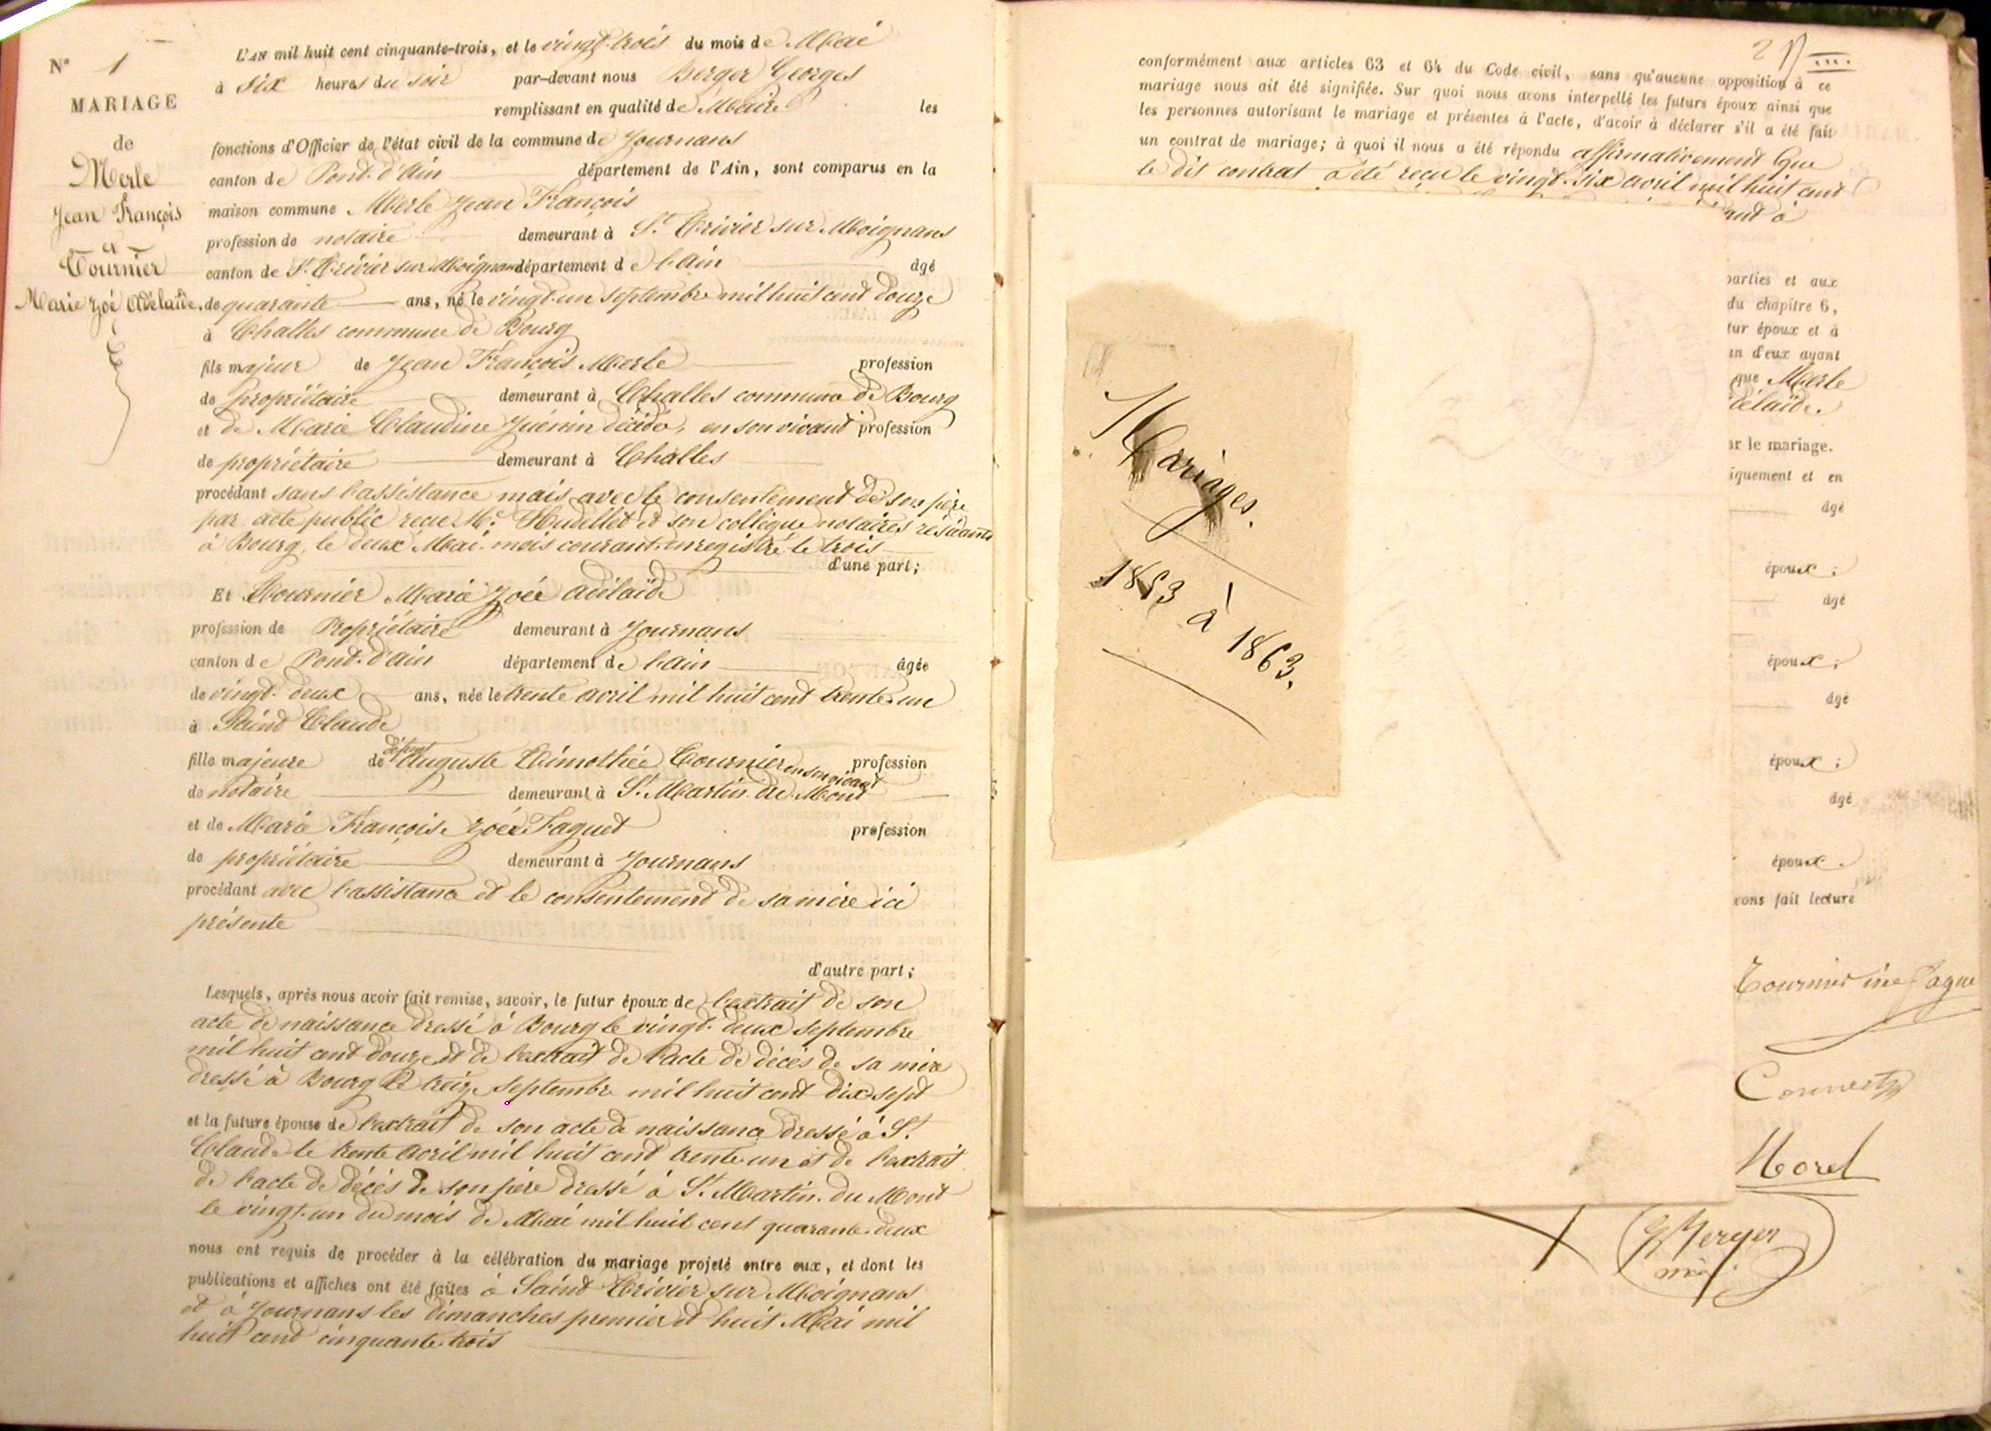 N° 1
MARIAGE
de
Merle
Jean François
et
Tournier
Marie Zoé Adélaïde.
L'AN mil huit cent cinquante-trois, et le vingt-trois du mois de Mai
à Six heures du soir par-devant nous Berger Georges
remplissant en qualité de Maire les
fonctions d'Officier de l'état civil de la commune de Journans
canton de Pont-d'Ain département de l'Ain, sont comparus en la
maison commune Merle Jean François
profession de notaire demeurant à St Trivier sur Moignans
canton de St Trivier sur Moignans département de l'Ain âgé
de quarante ans, né le vingt-un septembre mil huit cent douze
à Challes commune de Bourg
fils majeur de Jean François Merle profession
de propriétaire demeurant à Challes commune de Bourg
et de Marie Claudine Juénin décédée, en son vivant profession
de propriétaire demeurant à Challes
procédant sans l'assistance mais avec le consentement de son père
par acte public reçu Me Hudillet et son collègue notaires résidants
à Bourg, le deux Mai mois courant enregistré le trois
d'une part;
Et Tournier Marie Zoée Adélaïde
profession de Propriétaire demeurant à Journans
canton de Pont-d'Ain département de l'Ain âgée
de vingt-deux ans, née le trente avril mil huit cent trente-un
à Saint Claude
fille majeure de défunt Auguste Timothée Tournier en son vivant profession
de notaire demeurant à St Martin du Mont
et de Marie François Zoée Faguet profession
de propriétaire demeurant à Journans
procédant avec l'assistance et le consentement de sa mère ici
présente
d'autre part;
Lesquels, après nous avoir fait remise, savoir, le futur époux de l'extrait de son
acte de naissance dressé à Bourg le vingt-deux septembre
mil huit cent douze et de l'extrait de l'acte de décès de sa mère
dressé à Bourg le treize septembre mil huit cent dix-sept
et la future épouse de l'extrait de son acte de naissance dressé à St
Claude le trente avril mil huit cent trente-un et de l'extrait
de l'acte de décès de son père dressé à St Martin-du-Mont
le vingt-un du mois de Mai mil huit cent quarante-deux
nous ont requis de procéder à la célébration du mariage projeté entre eux, et dont les
publications et affiches ont été faites à Saint Trivier sur Moignans
et à Journans les dimanches premier et huit Mai mil
huit cent cinquante-trois
2
conformément aux articles 63 et 64 du Code civil, sans qu'aucune opposition à ce
mariage nous ait été signifiée. Sur quoi nous avons interpellé les futurs époux ainsi que
les personnes autorisant le mariage et présentes à l'acte, d'avoir à déclarer s'il a été fait
un contrat de mariage; à quoi il nous a été répondu affirmativement que
le dit contrat a été reçu le vingt-six avril mil huit cent
parties et aux
du chapitre 6,
tur époux et à
un d'eux ayant
que Merle
délaïde.
ar le mariage.
iquement et en
âgé
époux;
âgé
époux;
âgé
époux;
âgé
époux.
vons fait lecture
Mariages.
1853 à 1863.
Tournier née Fague
Convert
Morel
G Berger
maire